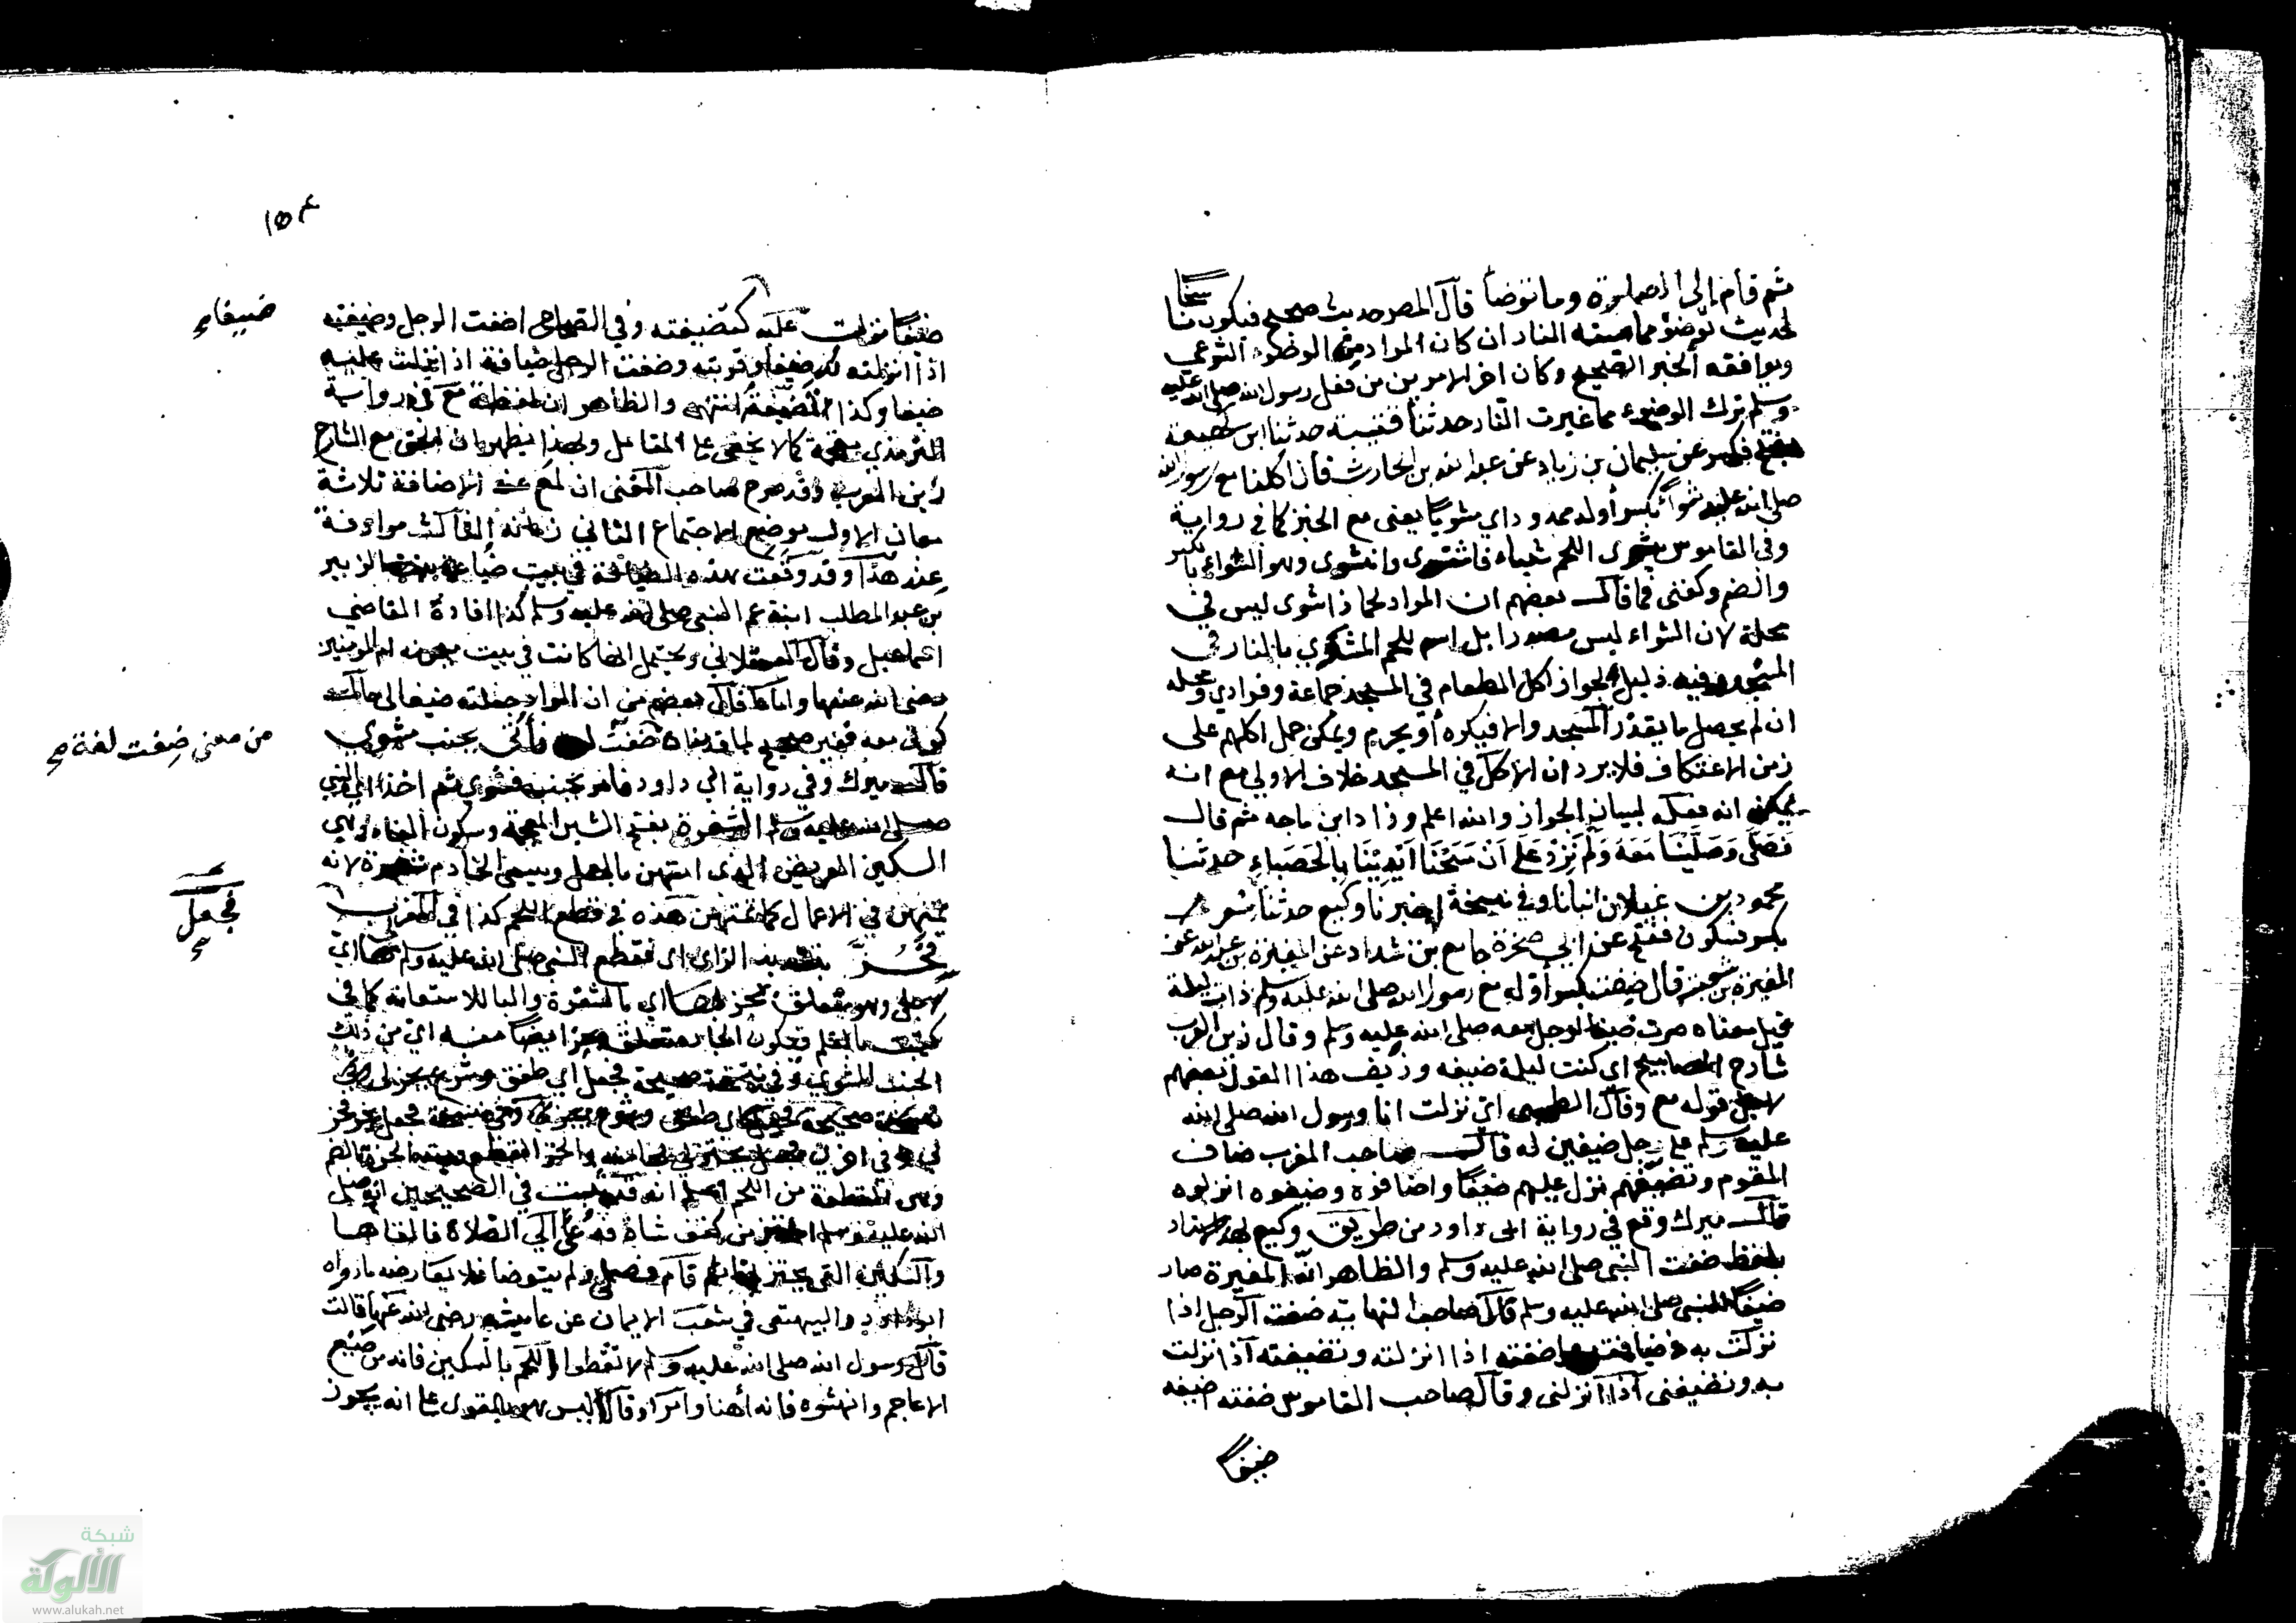 ثم قام إلى الصلوة وما توضأ قال المص حديث صحيح فيكون ناسخا
لحديث توضؤ مما مسته النار ان كان المراد من الوضوء الشرعي
ويوافقه الخبر الصحيح وكان اخر الامرين من فعل رسول الله صلى الله عليه
وسلم ترك الوضوء مما غيرت النار حدثنا قتيبة حدثنا ابن لهيعة
بفتح فكسر عن سليمان بن زياد عن عبد الله بن الحارث قال اكلنا مع رسول الله
صلى الله عليه شواء بكسر أوله ممدودا اي مشويا يعني مع الخبز كما في رواية
وفي القاموس شوى اللحم شياء فاشتوى وانشوى وهو الشواء بالكسر
والضم وكغني فما قال بعضهم ان المراد لحما ذا شوى ليس في
محله لان الشواء ليس مصدرا بل اسم للحم المشوي بالنار في
المسجد وفيه دليل لجواز اكل الطعام في المسجد جماعة وفرادي ومحله
ان لم يحصل ما يقذر المسجد والا فيكره أو يحرم ويمكن حمل اكلهم على
زمن الاعتكاف فلا يرد ان الاكل في المسجد خلاف الاولى مع انه
يمكن انه فعله لبيان الجواز والله اعلم وزاد ابن ماجه ثم قال
فصلى وصلينا معه ولم نزد على ان مسحنا ايدينا بالحصباء حدثنا
محمود بن غيلان انبأنا وفي نسخة اخبرنا وكيع حدثنا مسعر
بكسر فسكون ففتح عن ابي صخرة جامع بن شداد عن المغيرة بن عبد الله عن
المغيرة بن شعبة قال ضفت بكسر أوله مع رسول الله صلى الله عليه وسلم ذات ليلة
قيل معناه صرت ضيفا لرجل معه صلى الله عليه وسلم وقال زين العرب
شارح المصابيح اي كنت ليلة ضيفه وزيف هذا القول بعضهم
لاجل قوله مع وقال الطيبي اي نزلت انا ورسول الله صلى الله
عليه وسلم على رجل ضيفين له قال صاحب المغرب ضاف
القوم وتضيفهم نزل عليهم ضيفا واضافوه وضيفوه انزلوه
قال ميرك وقع في رواية ابى داود من طريق وكيع بهذا الاسناد
بلفظ ضفت النبي صلى الله عليه وسلم والظاهر ان المغيرة صار
ضيفا للنبي صلى الله عليه وسلم قال صاحب النهاية ضفت الرجل اذا
نزلت به في ضيافته واضفته اذا انزلته وتضيفته اذا نزلت
به وتضيفني اذا انزلني وقال صاحب القاموس ضفته اضيفه
ضيفا
١٥٤
ضيفا نزلت عليه كتضيفته وفي الصحاح اضفت الرجل وضيفته
ضيفا
اذا انزلته بك ضيفا وقريته وضفت الرجل ضيافة اذا نزلت عليه
ضيفا وكذا تضيفته انتهى والظاهر ان لفظة مع في رواية
الترمذي مقحمة كما لا يخفى على المتامل ولهذا يظهر ان الحق مع الشارح
زين العرب وقد صرح صاحب المغني ان لمع عند الاضافة ثلاثة
معان الاول موضع الاجتماع الثاني زمانه الثالث مرادفة
عند هذا وقد وقعت هذه الضيافة في بيت ضباعة بنت الزبير
بن عبد المطلب ابنة عم النبي صلى الله عليه وسلم كذا افاده القاضي
اسماعيل وقال العسقلاني ويحتمل انها كانت في بيت ميمونة ام المؤمنين
رضى الله عنها واما ما قال بعضهم من ان المراد جعلته ضيفا لى حال
كونى معه فغير صحيح لما قدمناه من معنى ضفت لغة فأتى بجنب مشوي
من معنى ضفت لغة صح
قال ميرك وفي رواية ابي داود فأمر بجنب فشوي ثم اخذ اي النبي
صلى الله عليه وسلم الشفرة بفتح الشين المعجمة وسكون الفاء وهي
السكين العريض الذي امتهن بالعمل ويسمى الخادم شفرة لانه
يمتهن في الاعمال كما تمتهن هذه في قطع اللحم كذا في المغرب
فجعل
صح
فحز بتشديد الزاي اي فقطع النبي صلى الله عليه وسلم لي اي
لاجلي وهو متعلق بحز بها اي بالشفرة والباء للاستعانة كما في
كتبت بالقلم فيكون الجار متعلق بحز ايضا منه اي من ذلك
الجنب المشوي وفي نسخة صحيحة فجعل اي طفق وشرع يحز لي
وهى القطعة من اللحم اعلم انه قد ثبت في الصحيحين انه صلى
الله عليه وسلم احتز من كتف شاة فدعي الى الصلاة فالقاها
والسكين التي يحتز بها ثم قام فصلى ولم يتوضأ فلا يعارضه ما رواه
ابو داود والبيهقي في شعب الايمان عن عايشة رضى الله عنها قالت
قال رسول الله صلى الله عليه وسلم لا تقطعوا اللحم بالسكين فانه من صنيع
الاعاجم وانهشوه فانه أهنأ وأمرأ وقالا ليس هو بالقوى على انه يجوز
شبكة
الألوكة
www.alukah.net